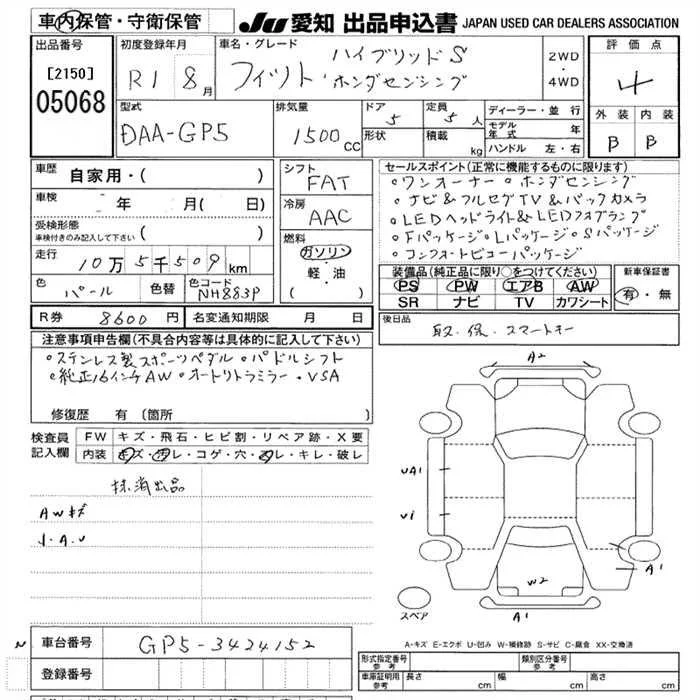 車内保管・守衛保管
JU 愛知 出品申込書 JAPAN USED CAR DEALERS ASSOCIATION
出品番号
[2150]
05068
初度登録年月
R1 8月
車名・グレード
ハイブリッドS
フィット・ホンダセンシング
2WD
・
4WD
評価点
4
外装 内装
B B
型式
DAA-GP5
排気量
1500cc
ドア
5
定員
5人
形状
積載
kg
ディーラー・並行
モデル年式 年
ハンドル 左・右
車歴
自家用・( )
車検
年 月( 日)
受検形態
車検付きのみ記入して下さい ( )
走行
10万5千509km
色
パール
色替
色コード
NH883P
シフト
FAT
冷房
AAC
燃料
ガソリン
・
軽・油
( )
セールスポイント(正常に機能するものに限ります)
○ワンオーナー ○ホンダセンシング
○ナビ&フルセグTV&バックカメラ
○LEDヘッドライト&LEDフォグランプ
○Fパッケージ○Lパッケージ○Sパッケージ
○コンフォートビューパッケージ
装備品(純正品に限り○をつけてください)
PS PW エアB AW
SR ナビ TV カワシート
新車保証書
有・無
R券 8600円
名変通知期限 月 日
後日品
取.保.スマートキー
注意事項申告欄(不具合内容等は具体的に記入して下さい)
○ステンレス製スポーツペダル ○パドルシフト
○純正16インチAW○オートリトラミラー・VSA
修復歴 有(箇所 )
検査員記入欄
FW キズ・飛石・ヒビ割・リペア跡・X要
内装 キズ・汚レ・コゲ・穴・スレ・キレ・破レ
抹消出品
AWキズ
J.A.U
A2
UA1
U1
W2
A1
A1
スペア
A-キズ E-エクボ U-凹み W-補修跡 S-サビ C-腐食 XX-交換済
車台番号 GP5-3424152
登録番号
形式指定番号 参考
類別区分番号 参考
車庫証明用 参考
長さ cm
幅 cm
高さ cm